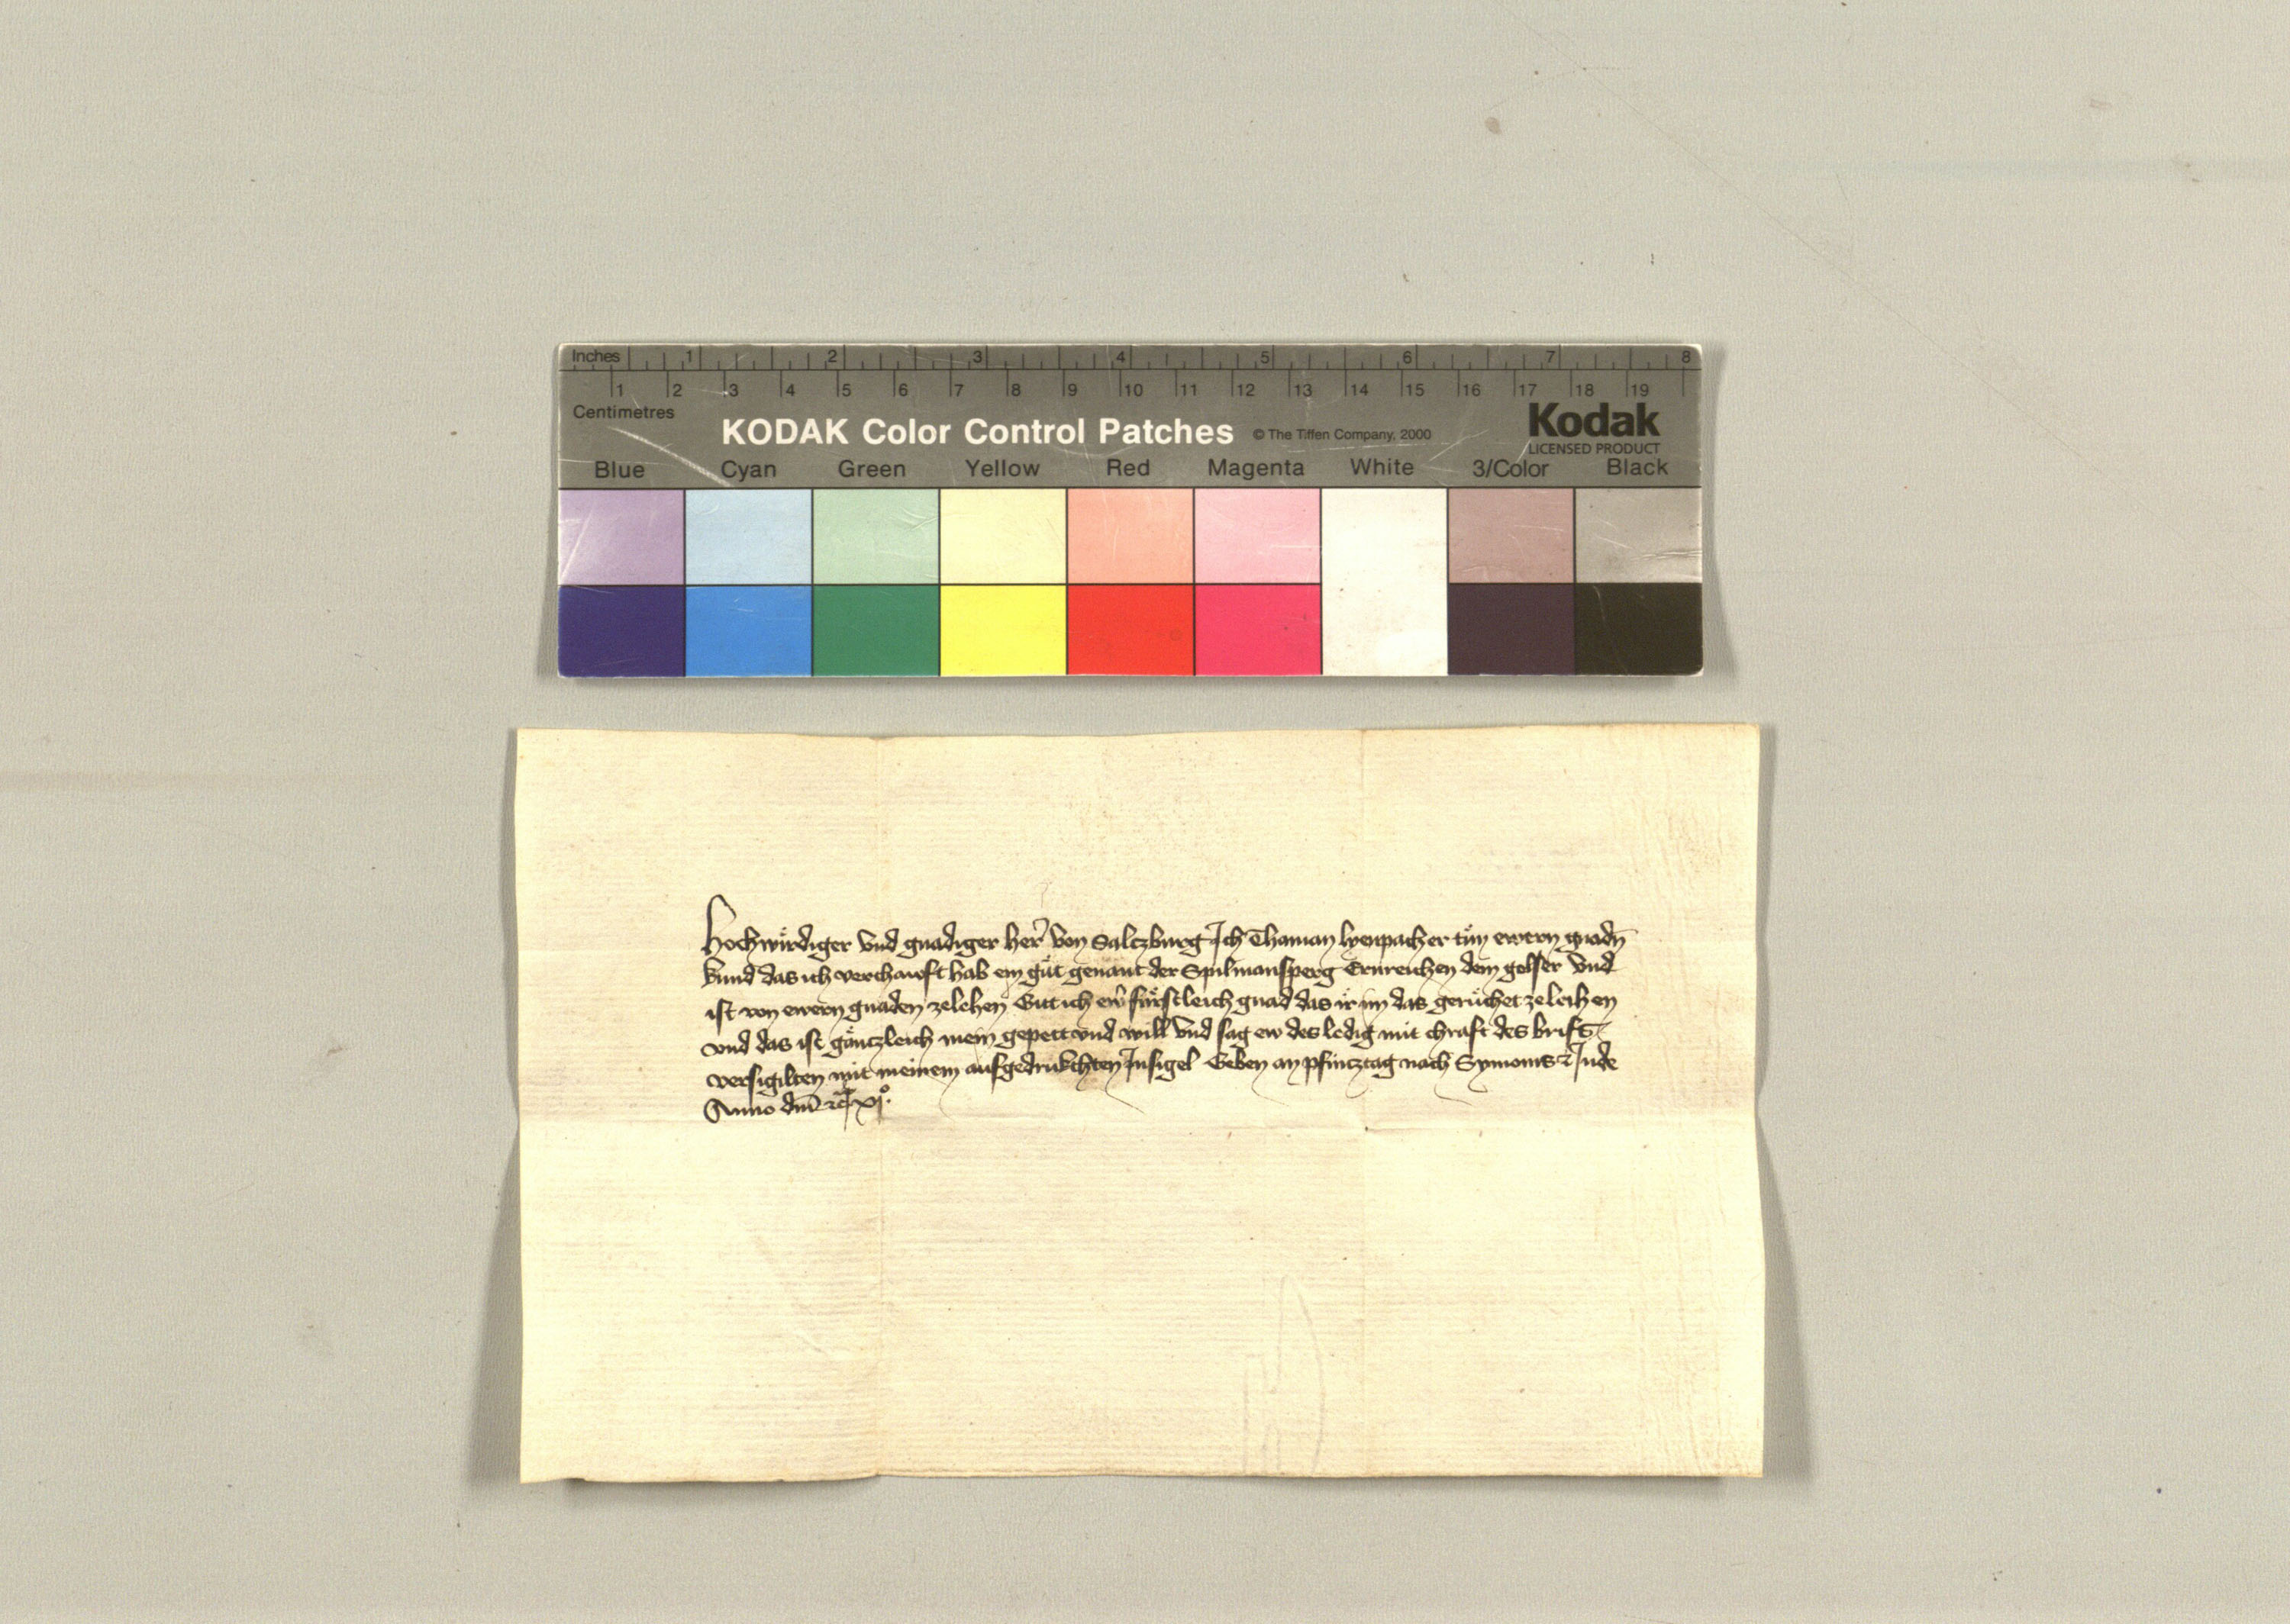 Inches 1 2 3 4 5 6 7 8
1 2 3 4 5 6 7 8 9 10 11 12 13 14 15 16 17 18 19
Centimetres
KODAK Color Control Patches © The Tiffen Company, 2000 Kodak
LICENSED PRODUCT
Blue Cyan Green Yellow Red Magenta White 3/Color Black
Hochwirdiger vnd gnadiger her̄ von Salczburg Ich Thaman lyenpacher tuͤn ewern gnadn̄
kund das ich verchauft hab ein guͤt genant der Spilmansperg Ernreichen dem golser vnd
ist von ewern gnaden zelehen Bitt ich ew̄ fuͤrstleich gnad das ir im das geruͤchet zeleihen
vnd das ist gaͤntzleich mein gepett vnd will vnd sag ew des ledig mit chraft des briefs
versigilten mit meinem aufgedrukchten Insigel Geben an pfincztag nach Symonis & Jude
Anno dm̄ xjº